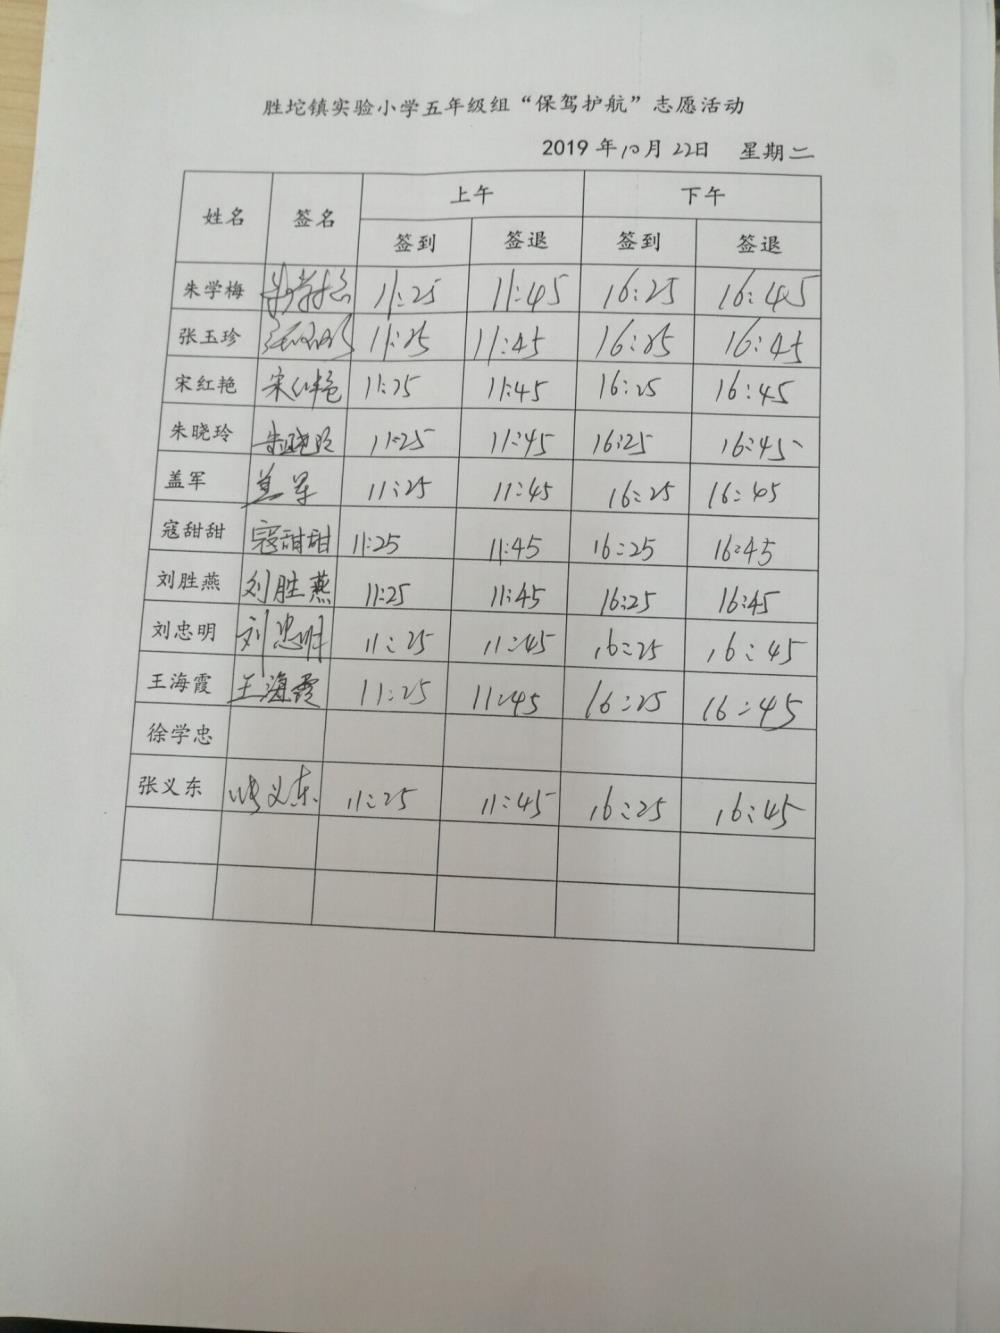 胜坨镇实验小学五年级组“保驾护航”志愿活动
2019 年10月 22日 星期二
姓名 签名 上午 下午
签到 签退 签到 签退
朱学梅 朱学梅 11:25 11:45 16:25 16:45
张玉珍 张玉珍 11:25 11:45 16:25 16:45
宋红艳 宋红艳 11:25 11:45 16:25 16:45
朱晓玲 朱晓玲 11:25 11:45 16:25 16:45
盖军 盖军 11:25 11:45 16:25 16:45
寇甜甜 寇甜甜 11:25 11:45 16:25 16:45
刘胜燕 刘胜燕 11:25 11:45 16:25 16:45
刘忠明 刘忠明 11:25 11:45 16:25 16:45
王海霞 王海霞 11:25 11:45 16:25 16:45
徐学忠
张义东 张义东 11:25 11:45 16:25 16:45